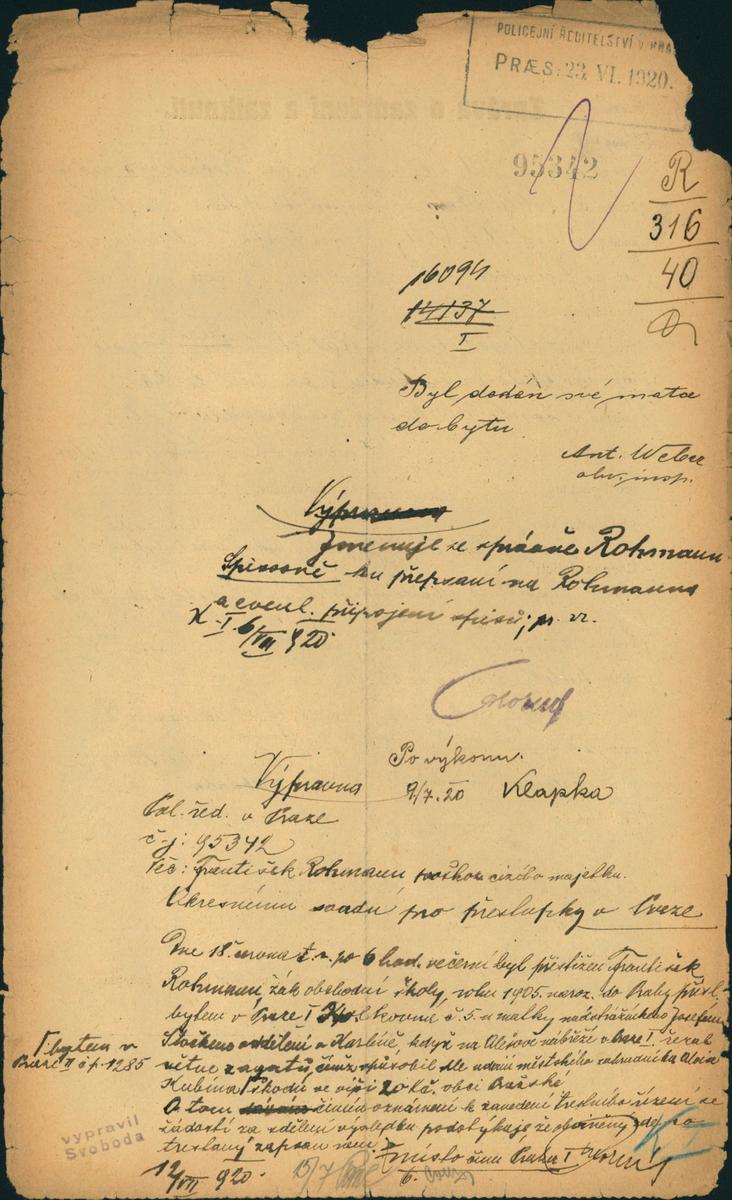 POLICEJNÍ ŘEDITELSTVÍ V PRA
PRÆS: 23. VI. 1920.
95342
R
316
40
16094
14137
I
Byl dodán své matce
do bytu
Ant. Weber
obv. insp.
Výpravna
Jmenuje se správně Rohmann
Spisovně ku přepsání na Rohmanna
a event. připojení spisů; pr. vr.
I 6/VII 920
Po výkonu.
Výpravna 9/7. 20 Klapka
Pol. řed. v Praze
č-j: 95342
Věc: František Rohmann poškoz. cizího majetku.
Okresnímu soudu pro přestupky v Praze
Dne 18. června t. r. po 6 hod. večerní byl přistižen František
Rohmann žák obchodní školy, roku 1905. naroz. do Prahy přísl.
bytem v Praze I č. 5. u matky
oddělení v Karlíně, když na Alešově nábřeží v Praze I. řezal
větve z agátů, čímž způsobil dle udání městského zahradníka Aloise
Kubína Γ škodu ve výši 20 Kč. obci Pražské
Γ bytem v
Praze II čp. 1285
O tom činím oznámení k zavedení trestního řízení se
žádostí za sdělení výsledku
trestaný zapsán není
vypravil
Svoboda
12/VII 920. 15/7